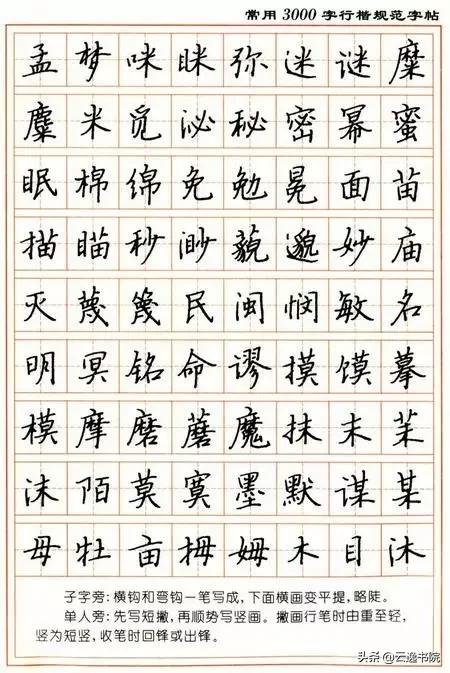 常用3000字行楷规范字帖
孟梦咪眯弥迷谜糜
麋米觅泌秘密幂蜜
眠棉绵免勉冕面苗
描瞄秒渺藐邈妙庙
灭蔑篾民闽悯敏名
明冥铭命谬摸馍摹
模摩磨蘑魔抹末茉
沫陌莫寞墨默谋某
母牡亩拇姆木目沐
子字旁:横钩和弯钩一笔写成,下面横画变平提,略陡。
单人旁:先写短撇,再顺势写竖画。撇画行笔时由重至轻,
竖为短竖,收笔时回锋或出锋。
头条@云逸书院